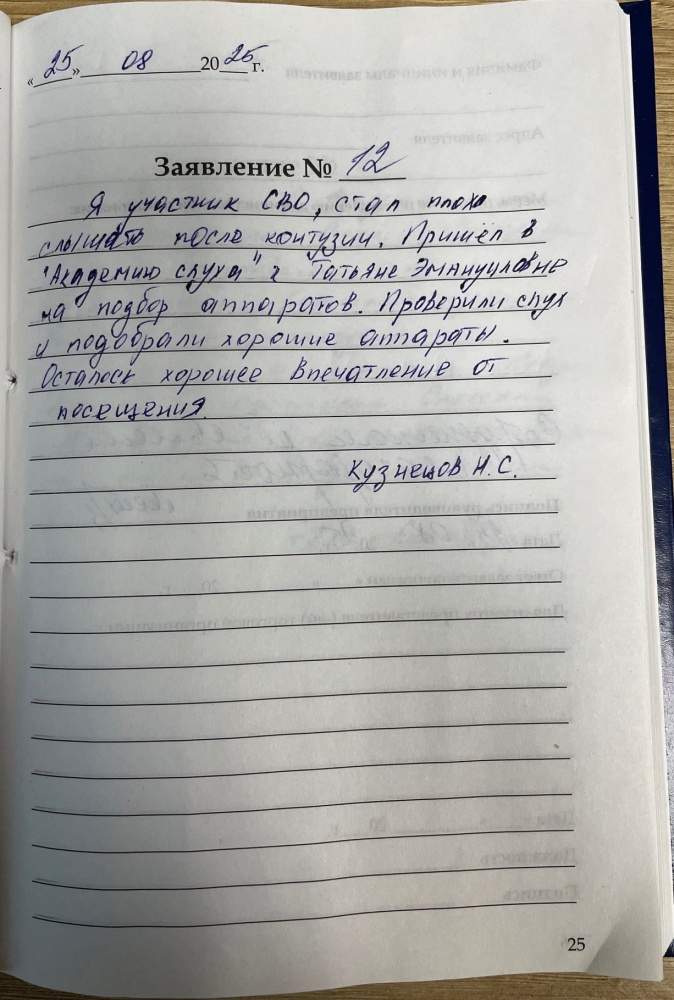 «25» 08 2025 г.
Заявление № 12
Я участник СВО, стал плохо
слышать после контузии. Пришёл в
"Академию слуха" к Татьяне Эмануиловне
на подбор аппаратов. Проверили слух
и подобрали хорошие аппараты.
Осталось хорошее впечатление от
посещения.
Кузнецов Н.С.
25